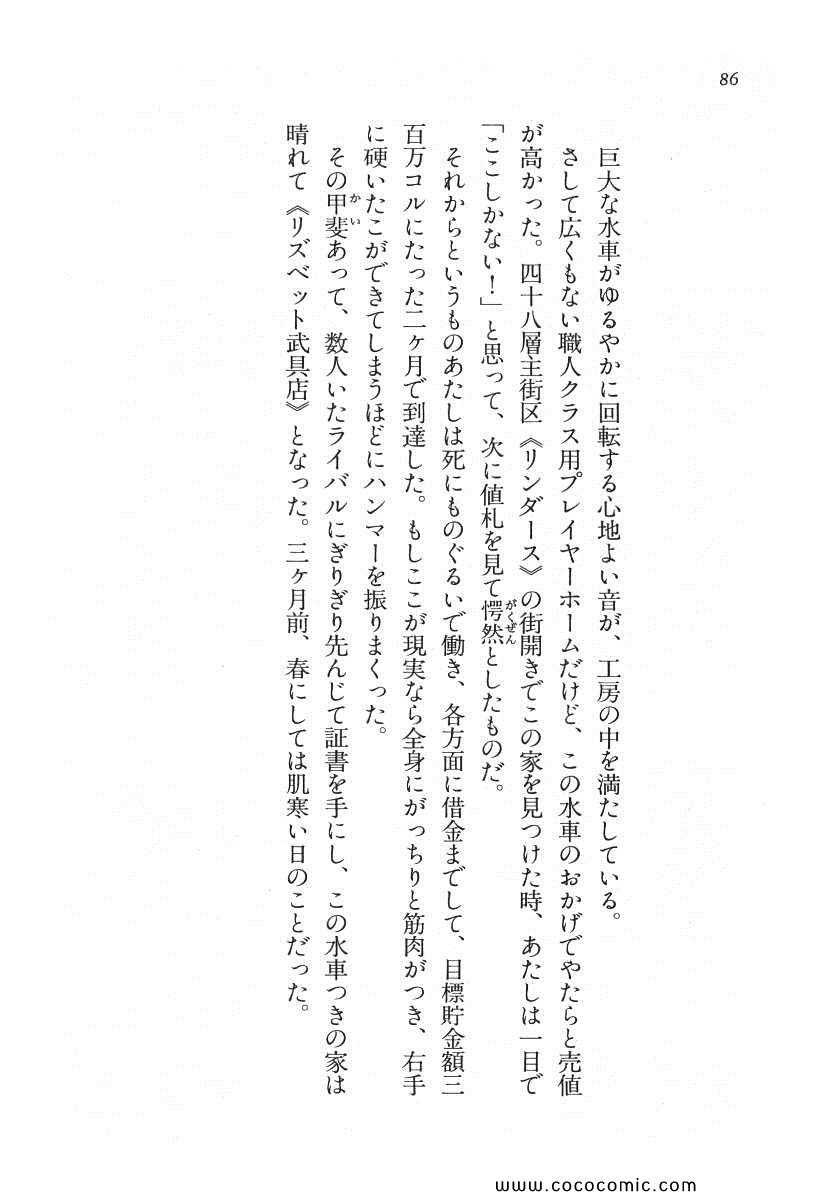 86
巨大な水車がゆるやかに回転する心地よい音が、工房の中を満たしている。
さして広くもない職人クラス用プレイヤーホームだけど、この水車のおかげでやたらと売値
が高かった。四十八層主街区《リンダース》の街開きでこの家を見つけた時、あたしは一目で
「ここしかない！」と思って、次に値札を見て愕然としたものだ。
それからというものあたしは死にものぐるいで働き、各方面に借金までして、目標貯金額三
百万コルにたった二ヶ月で到達した。もしここが現実なら全身にがっちりと筋肉がつき、右手
に硬いたこができてしまうほどにハンマーを振りまくった。
その甲斐あって、数人いたライバルにぎりぎり先んじて証書を手にし、この水車つきの家は
晴れて《リズベット武具店》となった。三ヶ月前、春にしては肌寒い日のことだった。
www.cococomic.com